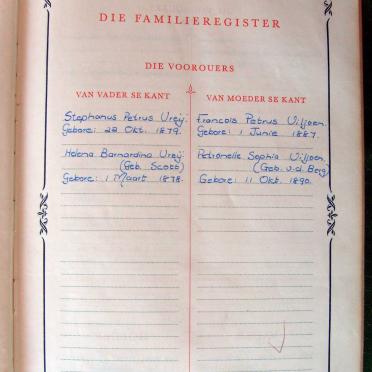 DIE FAMILIEREGISTER
DIE VOOROUERS
VAN VADER SE KANT
Stephanus Petrus Vreij.
Gebore: 28 Okt. 1879.
Helena Barnardina Vreij.
(Geb. Scott)
Gebore: 1 Maart 1878.
VAN MOEDER SE KANT
Francois Petrus Viljoen.
Gebore: 1 Junie 1887.
Petronella Sophia Viljoen.
(Geb v.d. Berg)
Gebore: 11 Okt. 1890.